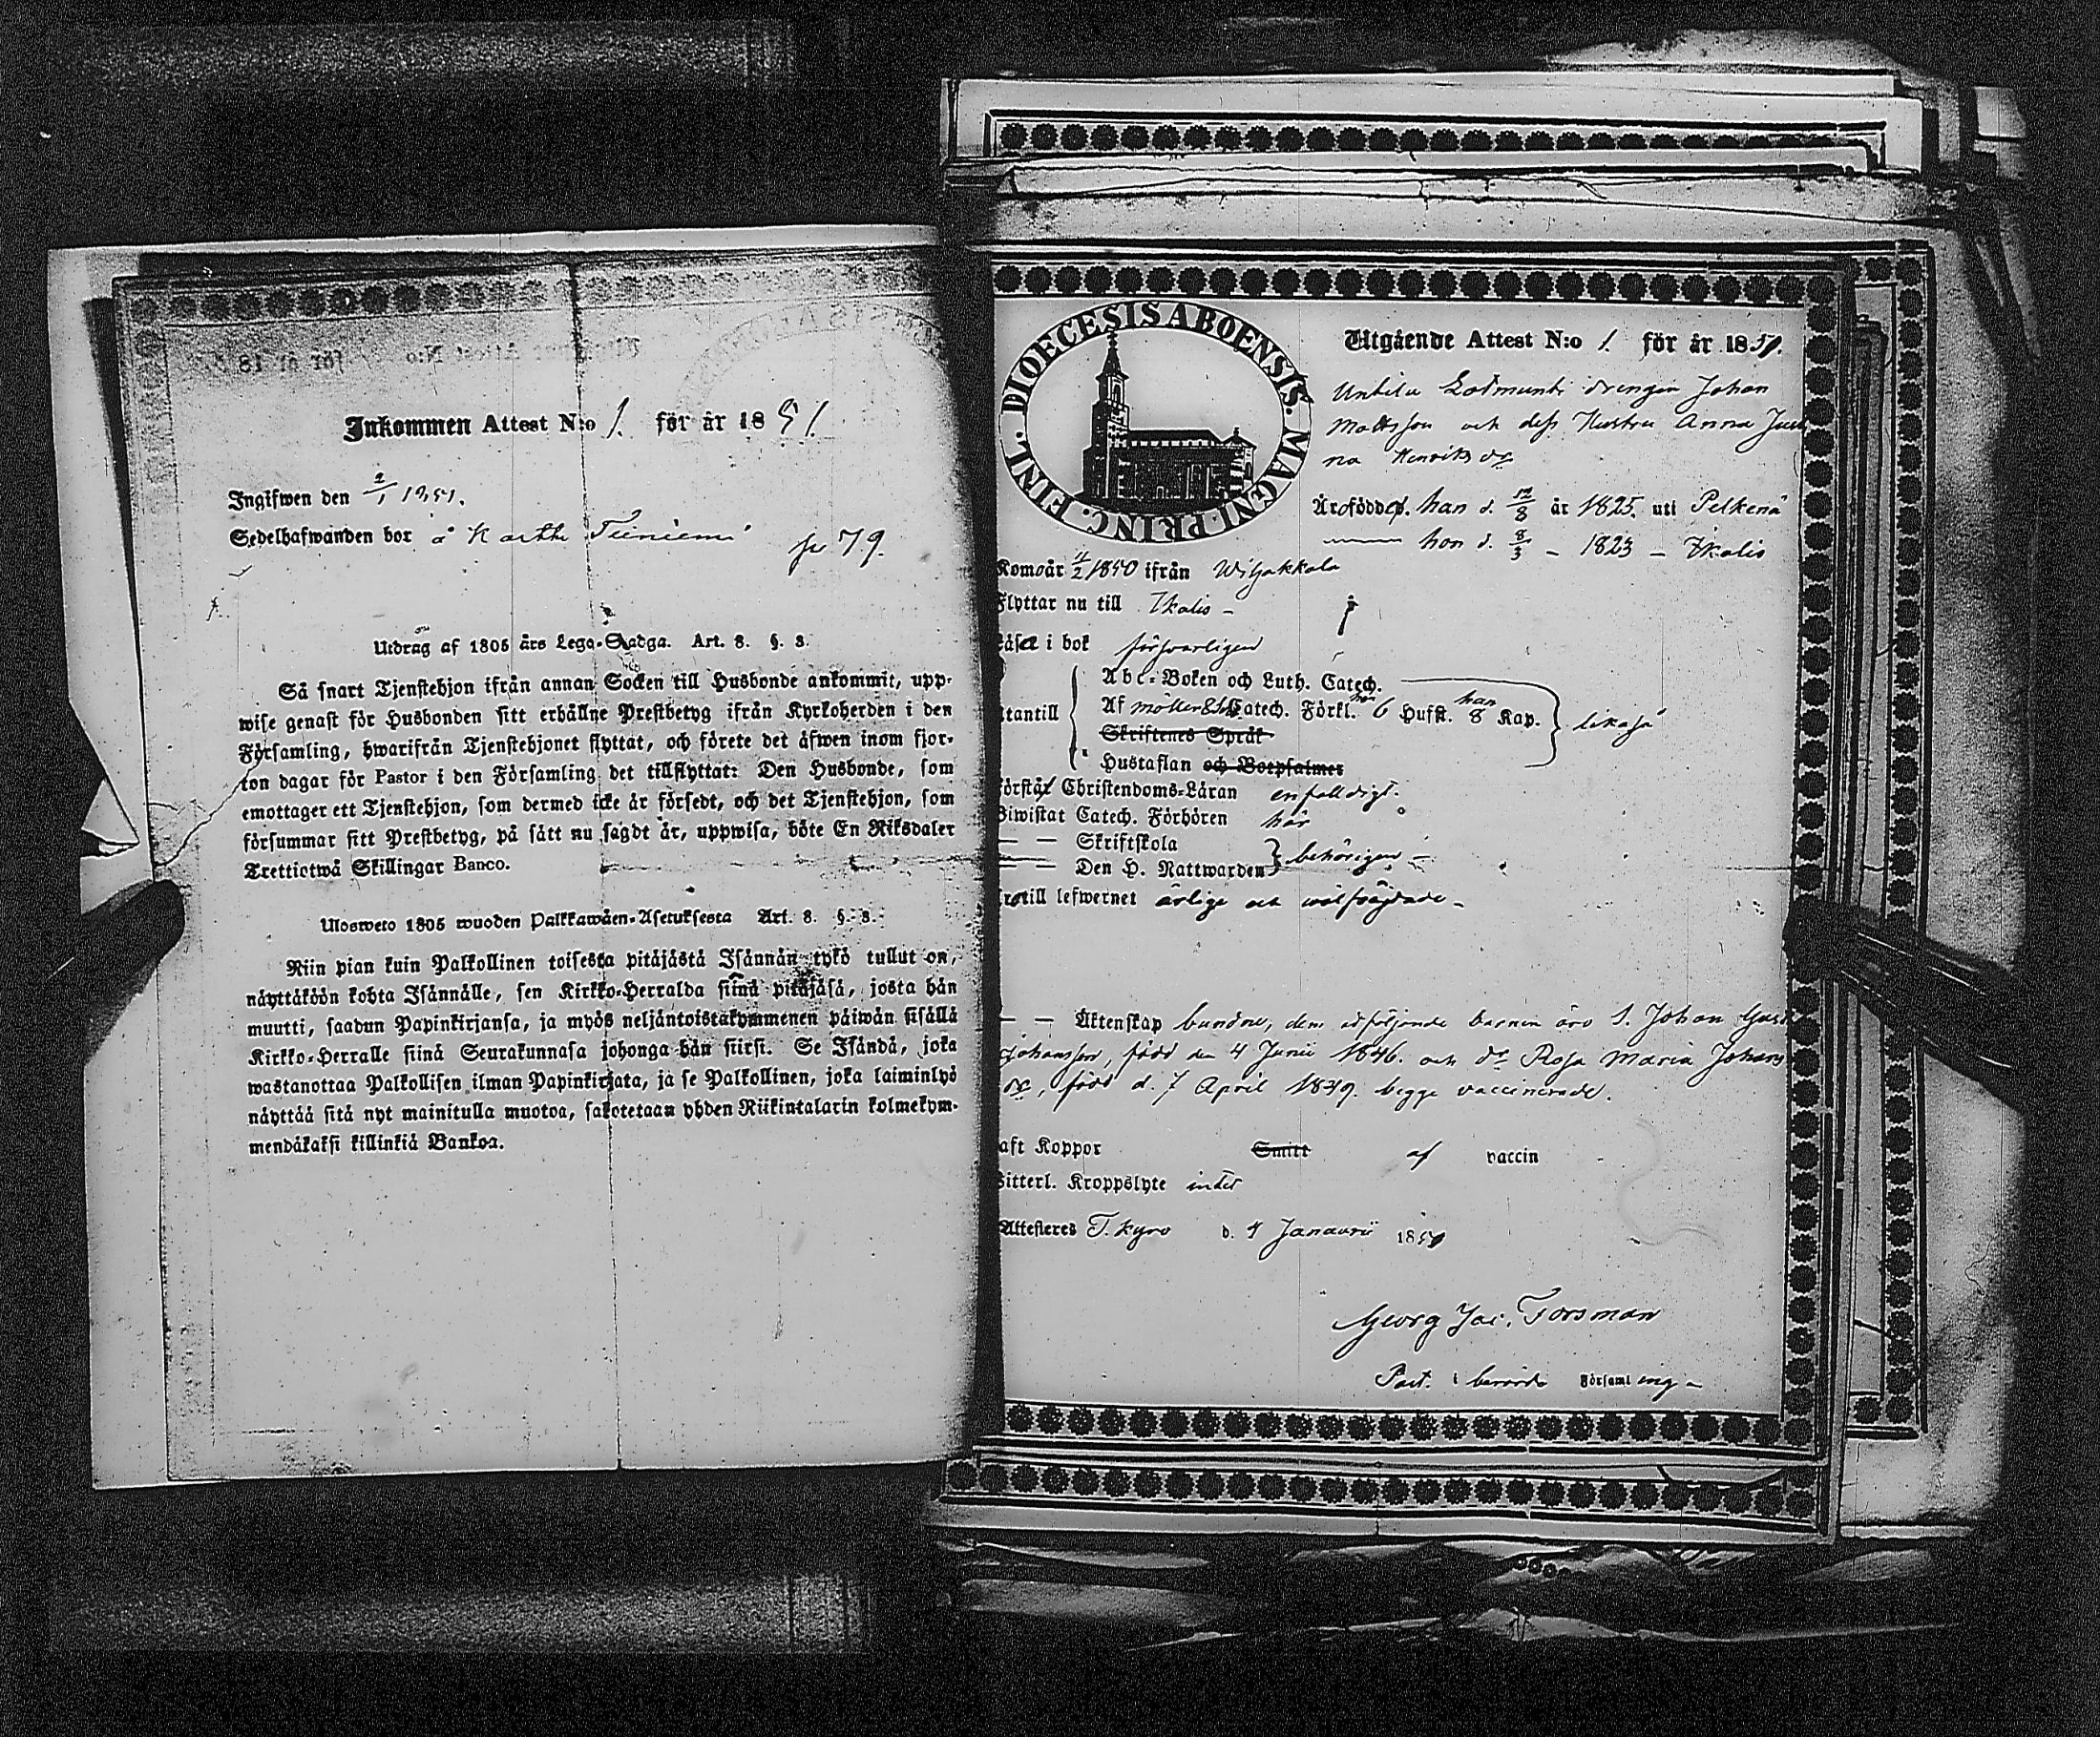 Inkommen Attest N:o 1. för år 1851.
Ingifwen den 2/1 1851.
Sedelhafwanden bor å Kartti Teiniemi pag 79.
Utdrag af 1805 års Lego-Stadga. Art. 8. §. 8.
Så snart Tjenstehjon ifrån annan Socken till Husbonde ankommit, upp-
wise genast för Husbonden sitt erhållne Prestbetyg ifrån Kyrkoherden i den
Församling, hwarifrån Tjenstehjonet flyttat, och förete det äfwen inom fjor-
ton dagar för Pastor i den Församling det tillflyttat: Den Husbonde, som
emottager ett Tjenstehjon, som dermed icke är försedt, och det Tjenstehjon, som
försummar sitt Prestbetyg, på sätt nu sagdt är, uppwisa, böte En Riksdaler
Trettiotwå Skillingar Banco.
Ulosweto 1805 wuoden Palkkawäen-Asetuksesta Art. 8. §. 8.
Niin pian kuin Palkollinen toisesta pitäjästä Isännän tykö tullut on,
näyttäköön kohta Isännälle, sen Kirkko-Herralda siinä pitäjäsä, josta hän
muutti, saadun Papinkirjansa, ja myös neljäntoistakymmenen päiwän sisällä
Kirkko-Herralle siinä Seurakunnasa johonga hän siirsi. Se Isändä, joka
wastanottaa Palkollisen ilman Papinkirjata, ja se Palkollinen, joka laiminlyö
näyttää sitä nyt mainitulla muotoa, sakotetaan yhden Riikintalarin kolmekym-
mendäkaksi killinkiä Bankoa.
DIOECESIS ABOENSIS. MAGNI. PRINC. FINL.
Utgående Attest N:o 1. för år 1851.
drengen Johan
Mattsson och dess Hustru Anna Jus
na Henriks dr
Äro födde. han d. 12/8 år 1825. uti Pelkenä
hon d. 8/3 – 1823 – Ikalis
Komo år 11/2 1850 ifrån Wiljakkala
Flyttar nu till Ikalis –
Läsa i bok försvarligen
Utantill Abc-Boken och Luth. Catech.
Af Möllers Catech. Förkl. hon 6 Hufst. han 8 Kap. likaså
Skriftenes Språk
Hustaflan och Botpsalmer
Förstå Christendoms-Läran enfaldigt.
Biwistat Catech. Förhören här
— — Skriftskola
— — Den H. Nattwarden behörigen –
Äro till lefwernet ärlige och wälfrägdade –
— — Äktenskap bundne, dem åtföljande barnen äro S. Johan Gust
Johansson, född den 4 Junii 1846. och dr Rosa Maria Johans
dr, född d. 7 April 1849. begge vaccinerade.
Haft Koppor Smitt af vaccin
Witterl. Kroppslyte intet
Attesteres T. Kyro d. 1 Januarii 1851
Georg Jac. Forsman
Past. i berörde Församling –